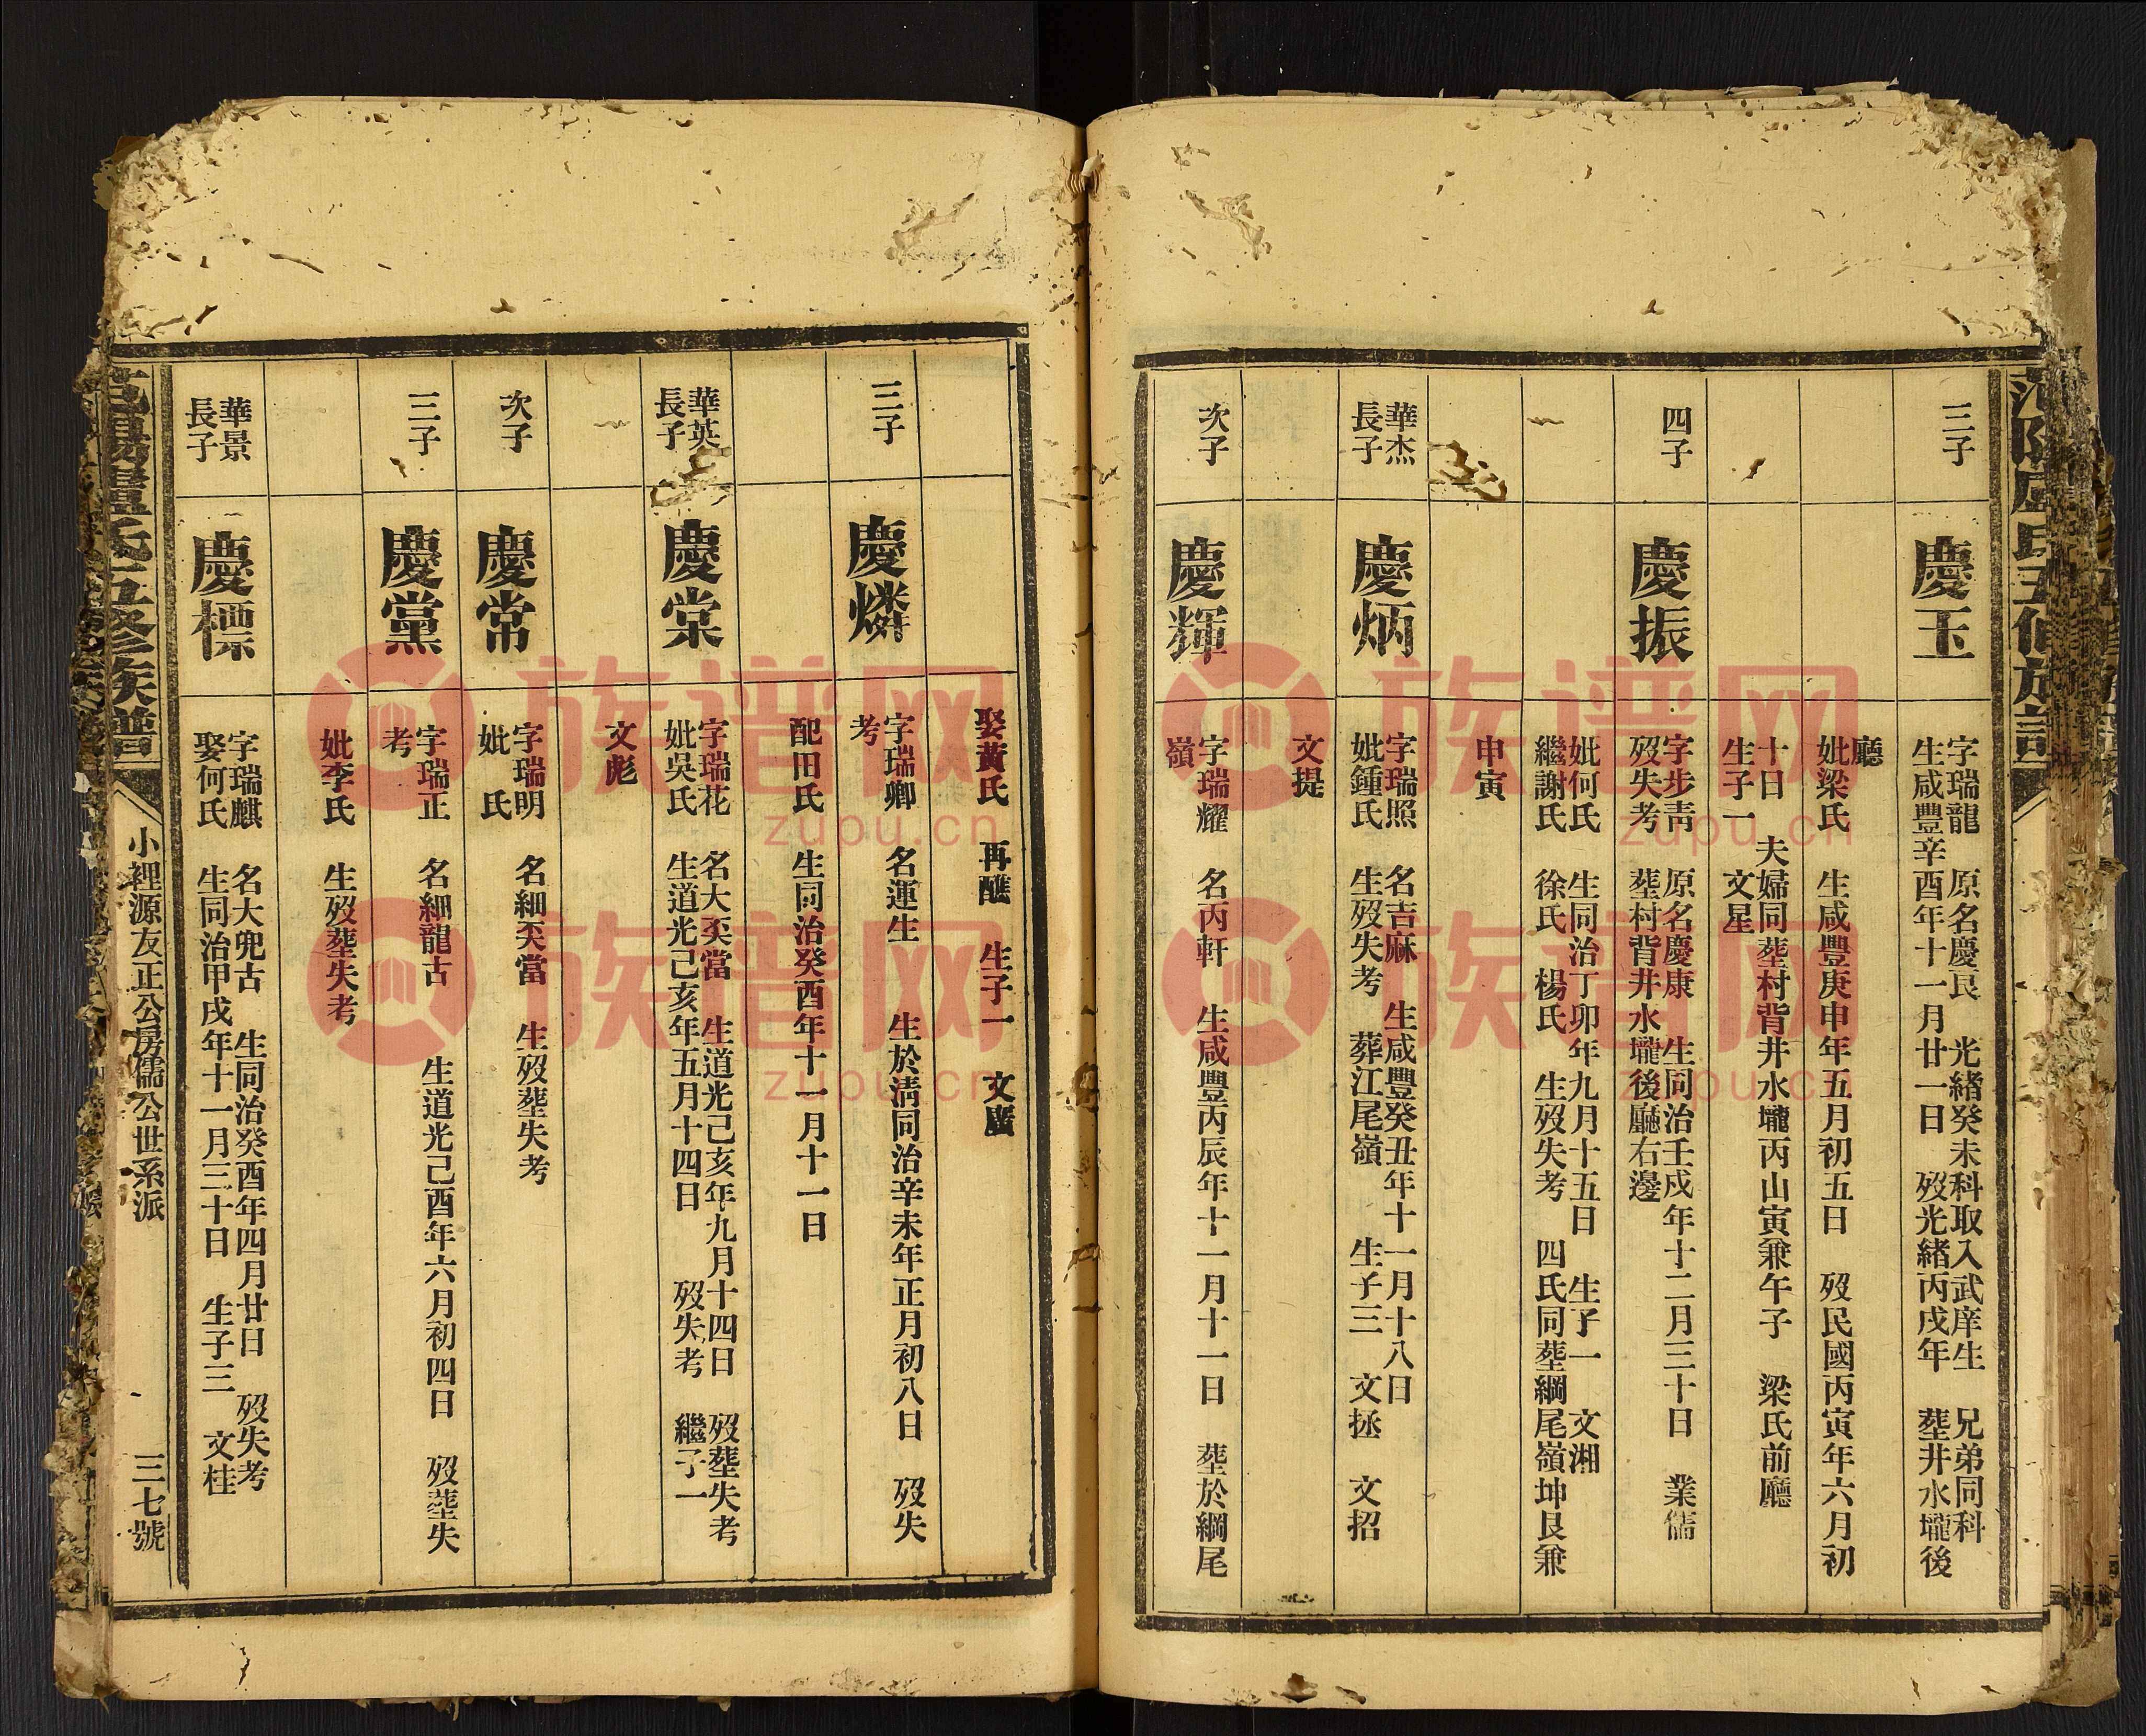 三子
慶玉
字瑞龍 原名慶良 光緒癸未科取入武庠生 兄弟同科
生咸豐辛酉年十一月廿一日 歿光緒丙戌年 塟井水壠後
廳
妣梁氏 生咸豐庚申年五月初五日 歿民國丙寅年六月初
十日 夫婦同塟村背井水壠丙山寅兼午子 梁氏前廳
生子一 文星
四子
慶振
字步靑 原名慶康 生同治壬戌年十二月三十日 業儒
歿失考 塟村背井水壠後廳右邊
妣何氏 生同治丁卯年九月十五日 生子一 文湘
繼謝氏 徐氏 楊氏 生歿失考 四氏同塟綱尾嶺坤艮兼
申寅
華杰
長子
慶炳
字瑞照 名吉麻 生咸豐癸丑年十一月十八日
妣鍾氏 生歿失考 葬江尾嶺 生子三 文拯 文招
文提
次子
慶輝
字瑞耀 名丙軒 生咸豐丙辰年十一月十一日 塟於綱尾
嶺
娶黃氏 再醮 生子一 文廣
三子
慶燐
字瑞卿 名運生 生於清同治辛未年正月初八日 歿失
考
配田氏 生同治癸酉年十一月十一日
華英
長子
慶棠
字瑞花 名大奀當 生道光己亥年九月十四日 歿塟失考
妣吳氏 生道光己亥年五月十四日 歿失考 繼子一
文彪
次子
慶常
字瑞明 名細奀當 生歿塟失考
妣 氏
三子
慶黨
字瑞正 名細龍古 生道光己酉年六月初四日 歿塟失
考
妣李氏 生歿塟失考
華景
長子
慶標
字瑞麒 名大兜古 生同治癸酉年四月廿日 歿失考
娶何氏 生同治甲戌年十一月三十日 生子三 文桂
范陽盧氏五修族譜
小裡源友正公房儒公世系派
三七號
族谱网
zupu.cn
族谱网
zupu.cn
族谱网
zupu.cn
族谱网
zupu.cn